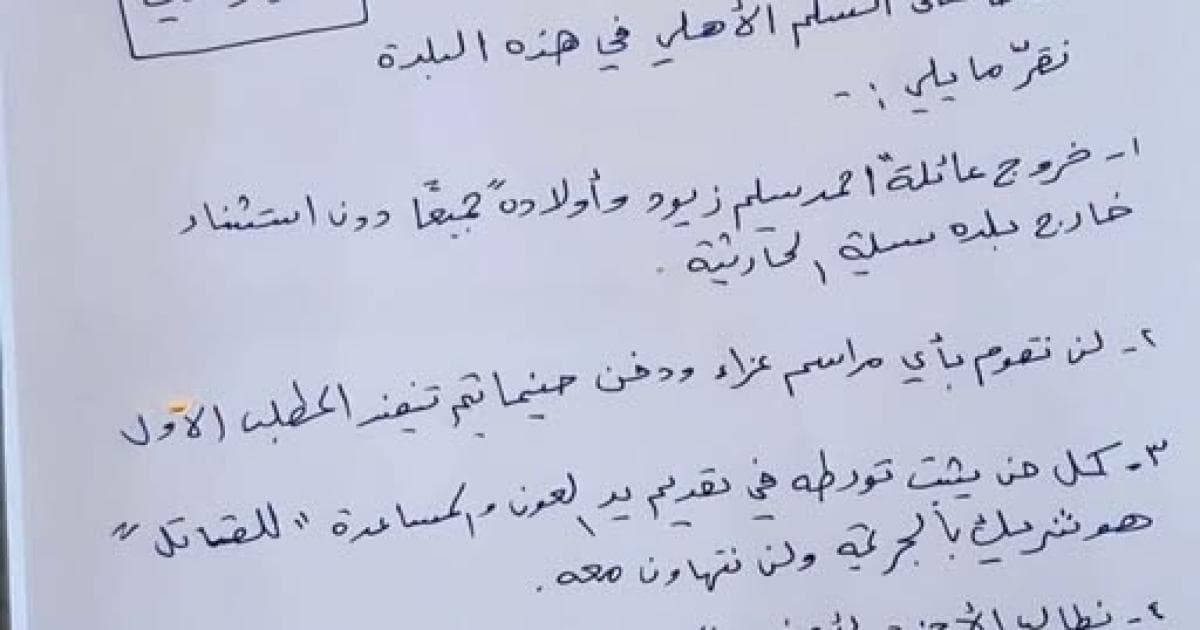 السلم الأهلي في هذه البلدة
نقرّ ما يلي :-
١- خروج عائلة "احمد سليم زيود وأولاده" جميعًا دون استثناء
خارج بلده سيلة الحارثية .
٢- لن نقوم بأي مراسم عزاء ودفن حينما يتم تنفيذ المطلب الأول
٣- كل من يثبت تورطه في تقديم يد العون والمساعدة "للقاتل"
هو شريك بالجريمة ولن نتهاون معه .
٤- نطالب